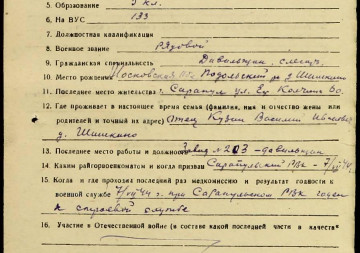 5. Образование 5 кл.
6. На ВУС 133
7. Должностная квалификация
8. Военное звание рядовой
9. Гражданская специальность Давильщик, слесарь
10. Место рождения Московская Подольский д Шишкино
11. Последнее место жительства г. Сарапул ул. Колчина 60.
12. Где проживает в настоящее время семья (фамилия, имя и отчество жены или
родителей и точный их адрес) Отец Кузин Василий
д. Шишкино
13. Последнее место работы и должность Завод № 203 - давильщик
14. Каким райгорвоенкоматом и когда призван Сарапульский РВК - 7/VII 44 г.
15. Когда и где проходил последний раз медкомиссию и результат годности к
военной службе 7/VII 44 г. при Сарапульском РВК годен
к строевой службе
16. Участие в Отечественной войне (в составе какой последней части и в качестве